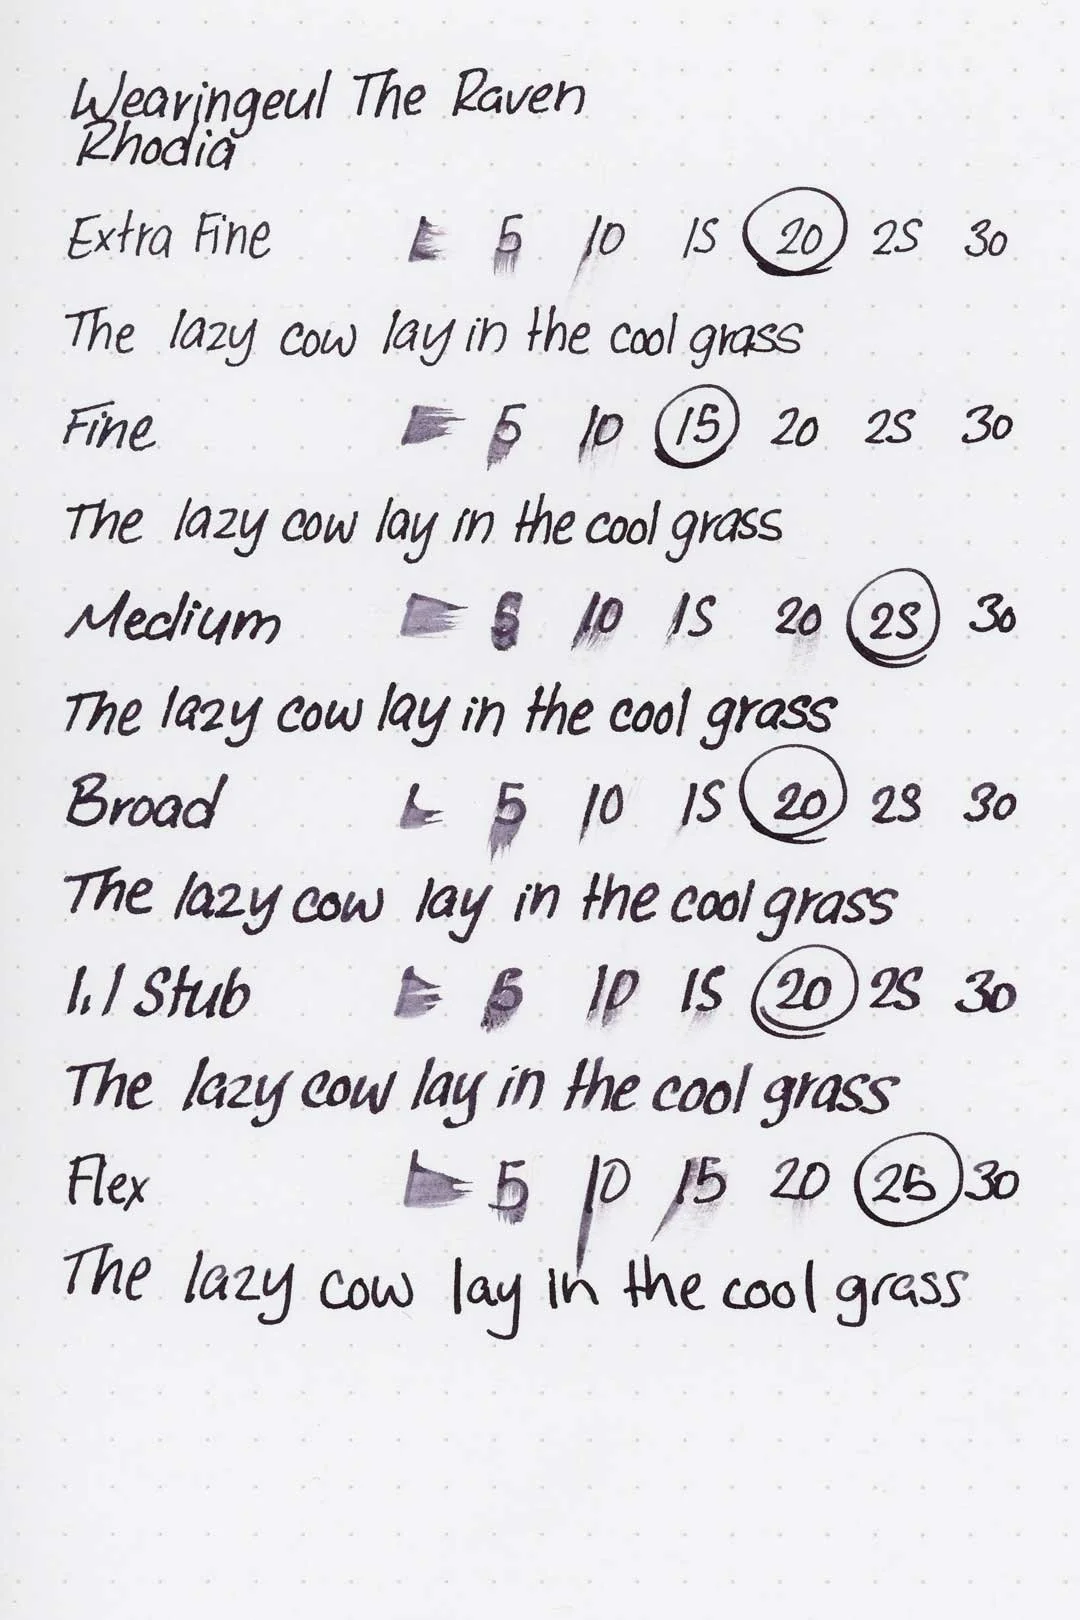 Wearingeul The Raven
Rhodia
Extra Fine 5 10 15 20 25 30
The lazy cow lay in the cool grass
Fine 5 10 15 20 25 30
The lazy cow lay in the cool grass
Medium 5 10 15 20 25 30
The lazy cow lay in the cool grass
Broad 5 10 15 20 25 30
The lazy cow lay in the cool grass
1.1 Stub 5 10 15 20 25 30
The lazy cow lay in the cool grass
Flex 5 10 15 20 25 30
The lazy cow lay in the cool grass